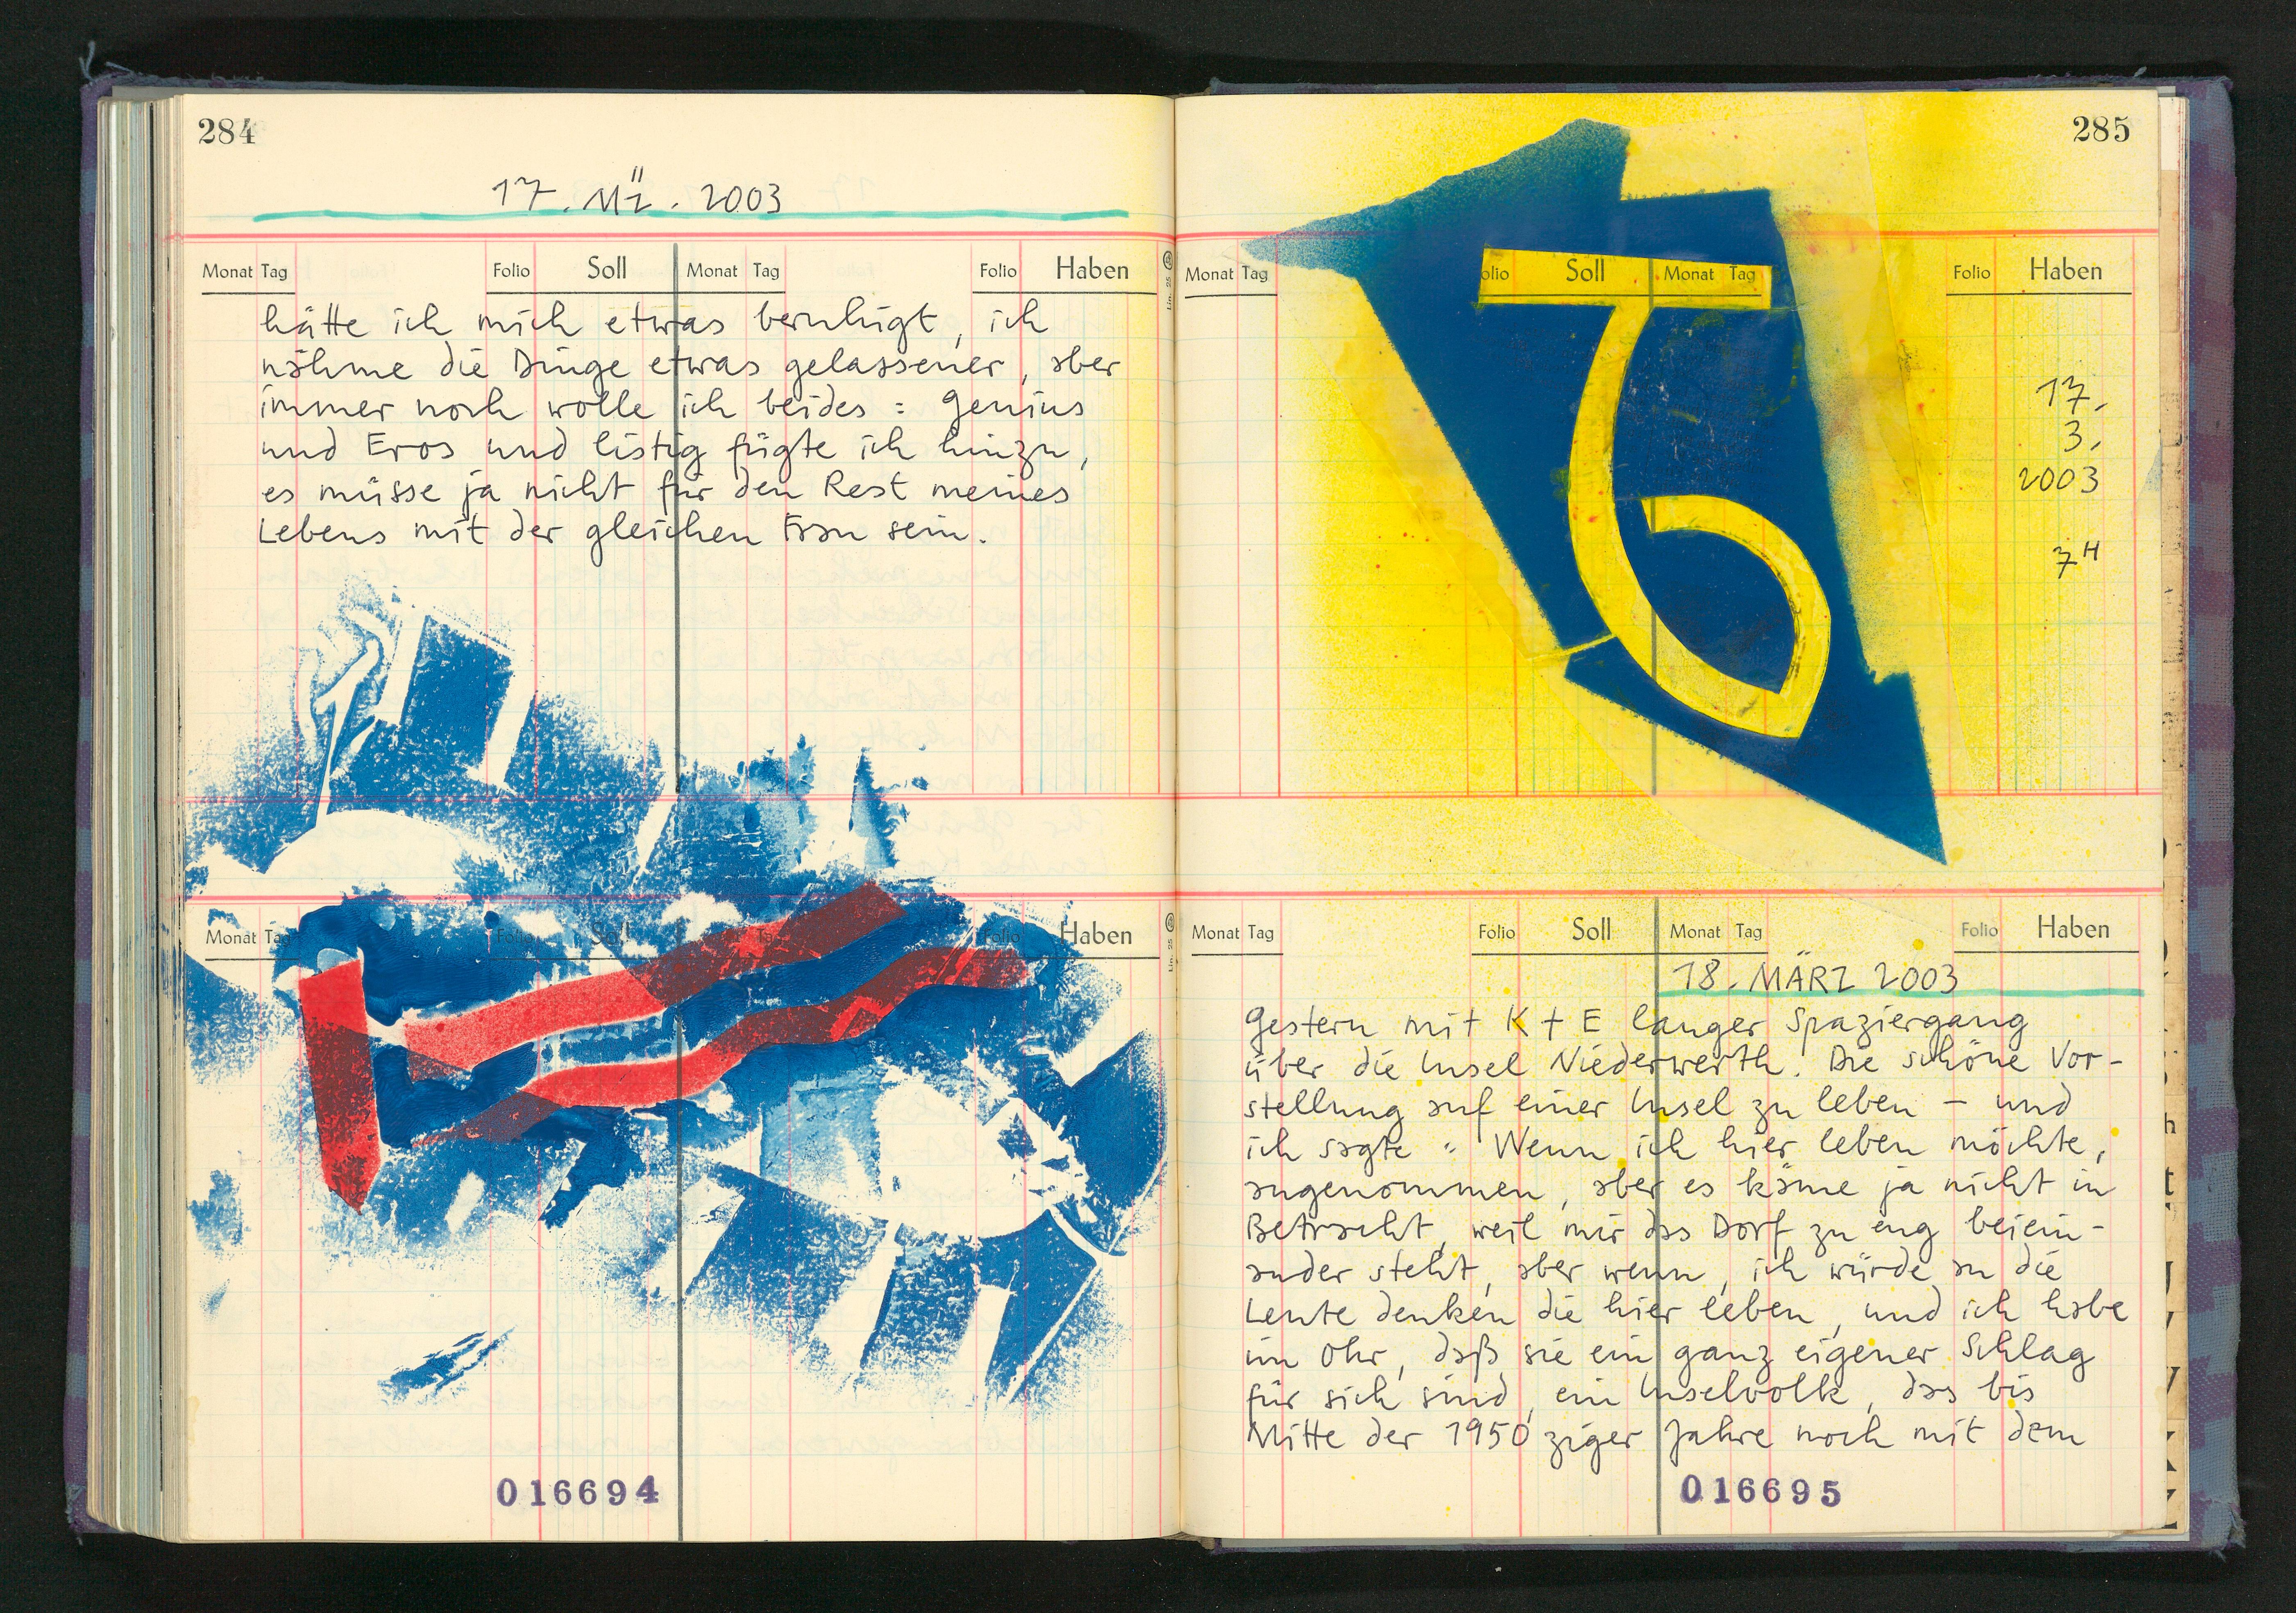 284
17. MÄ. 2003
Monat Tag Folio Soll Monat Tag Folio Haben
hätte ich mich etwas beruhigt, ich
nähme die Dinge etwas gelassener, aber
immer noch wolle ich beides: Genius
und Eros und listig fügte ich hinzu,
es müsse ja nicht für den Rest meines
Lebens mit der gleichen Frau sein.
Monat Tag Folio Soll Tag Folio Haben
016694
285
Monat Tag olio Soll Monat Tag Folio Haben
17.
3.
2003
7H
Monat Tag Folio Soll Monat Tag Folio Haben
18. MÄRZ 2003
Gestern mit K + E langer Spaziergang
über die Insel Niederwerth. Die schöne Vor-
stellung auf einer Insel zu leben – und
ich sagte: Wenn ich hier leben möchte,
angenommen, aber es käme ja nicht in
Betracht, weil mir das Dorf zu eng beiein-
ander steht, aber wenn, ich würde an die
Leute denken die hier leben, und ich habe
im Ohr, daß sie ein ganz eigener Schlag
für sich sind, ein Inselvolk, das bis
Mitte der 1950ziger Jahre noch mit dem
016695